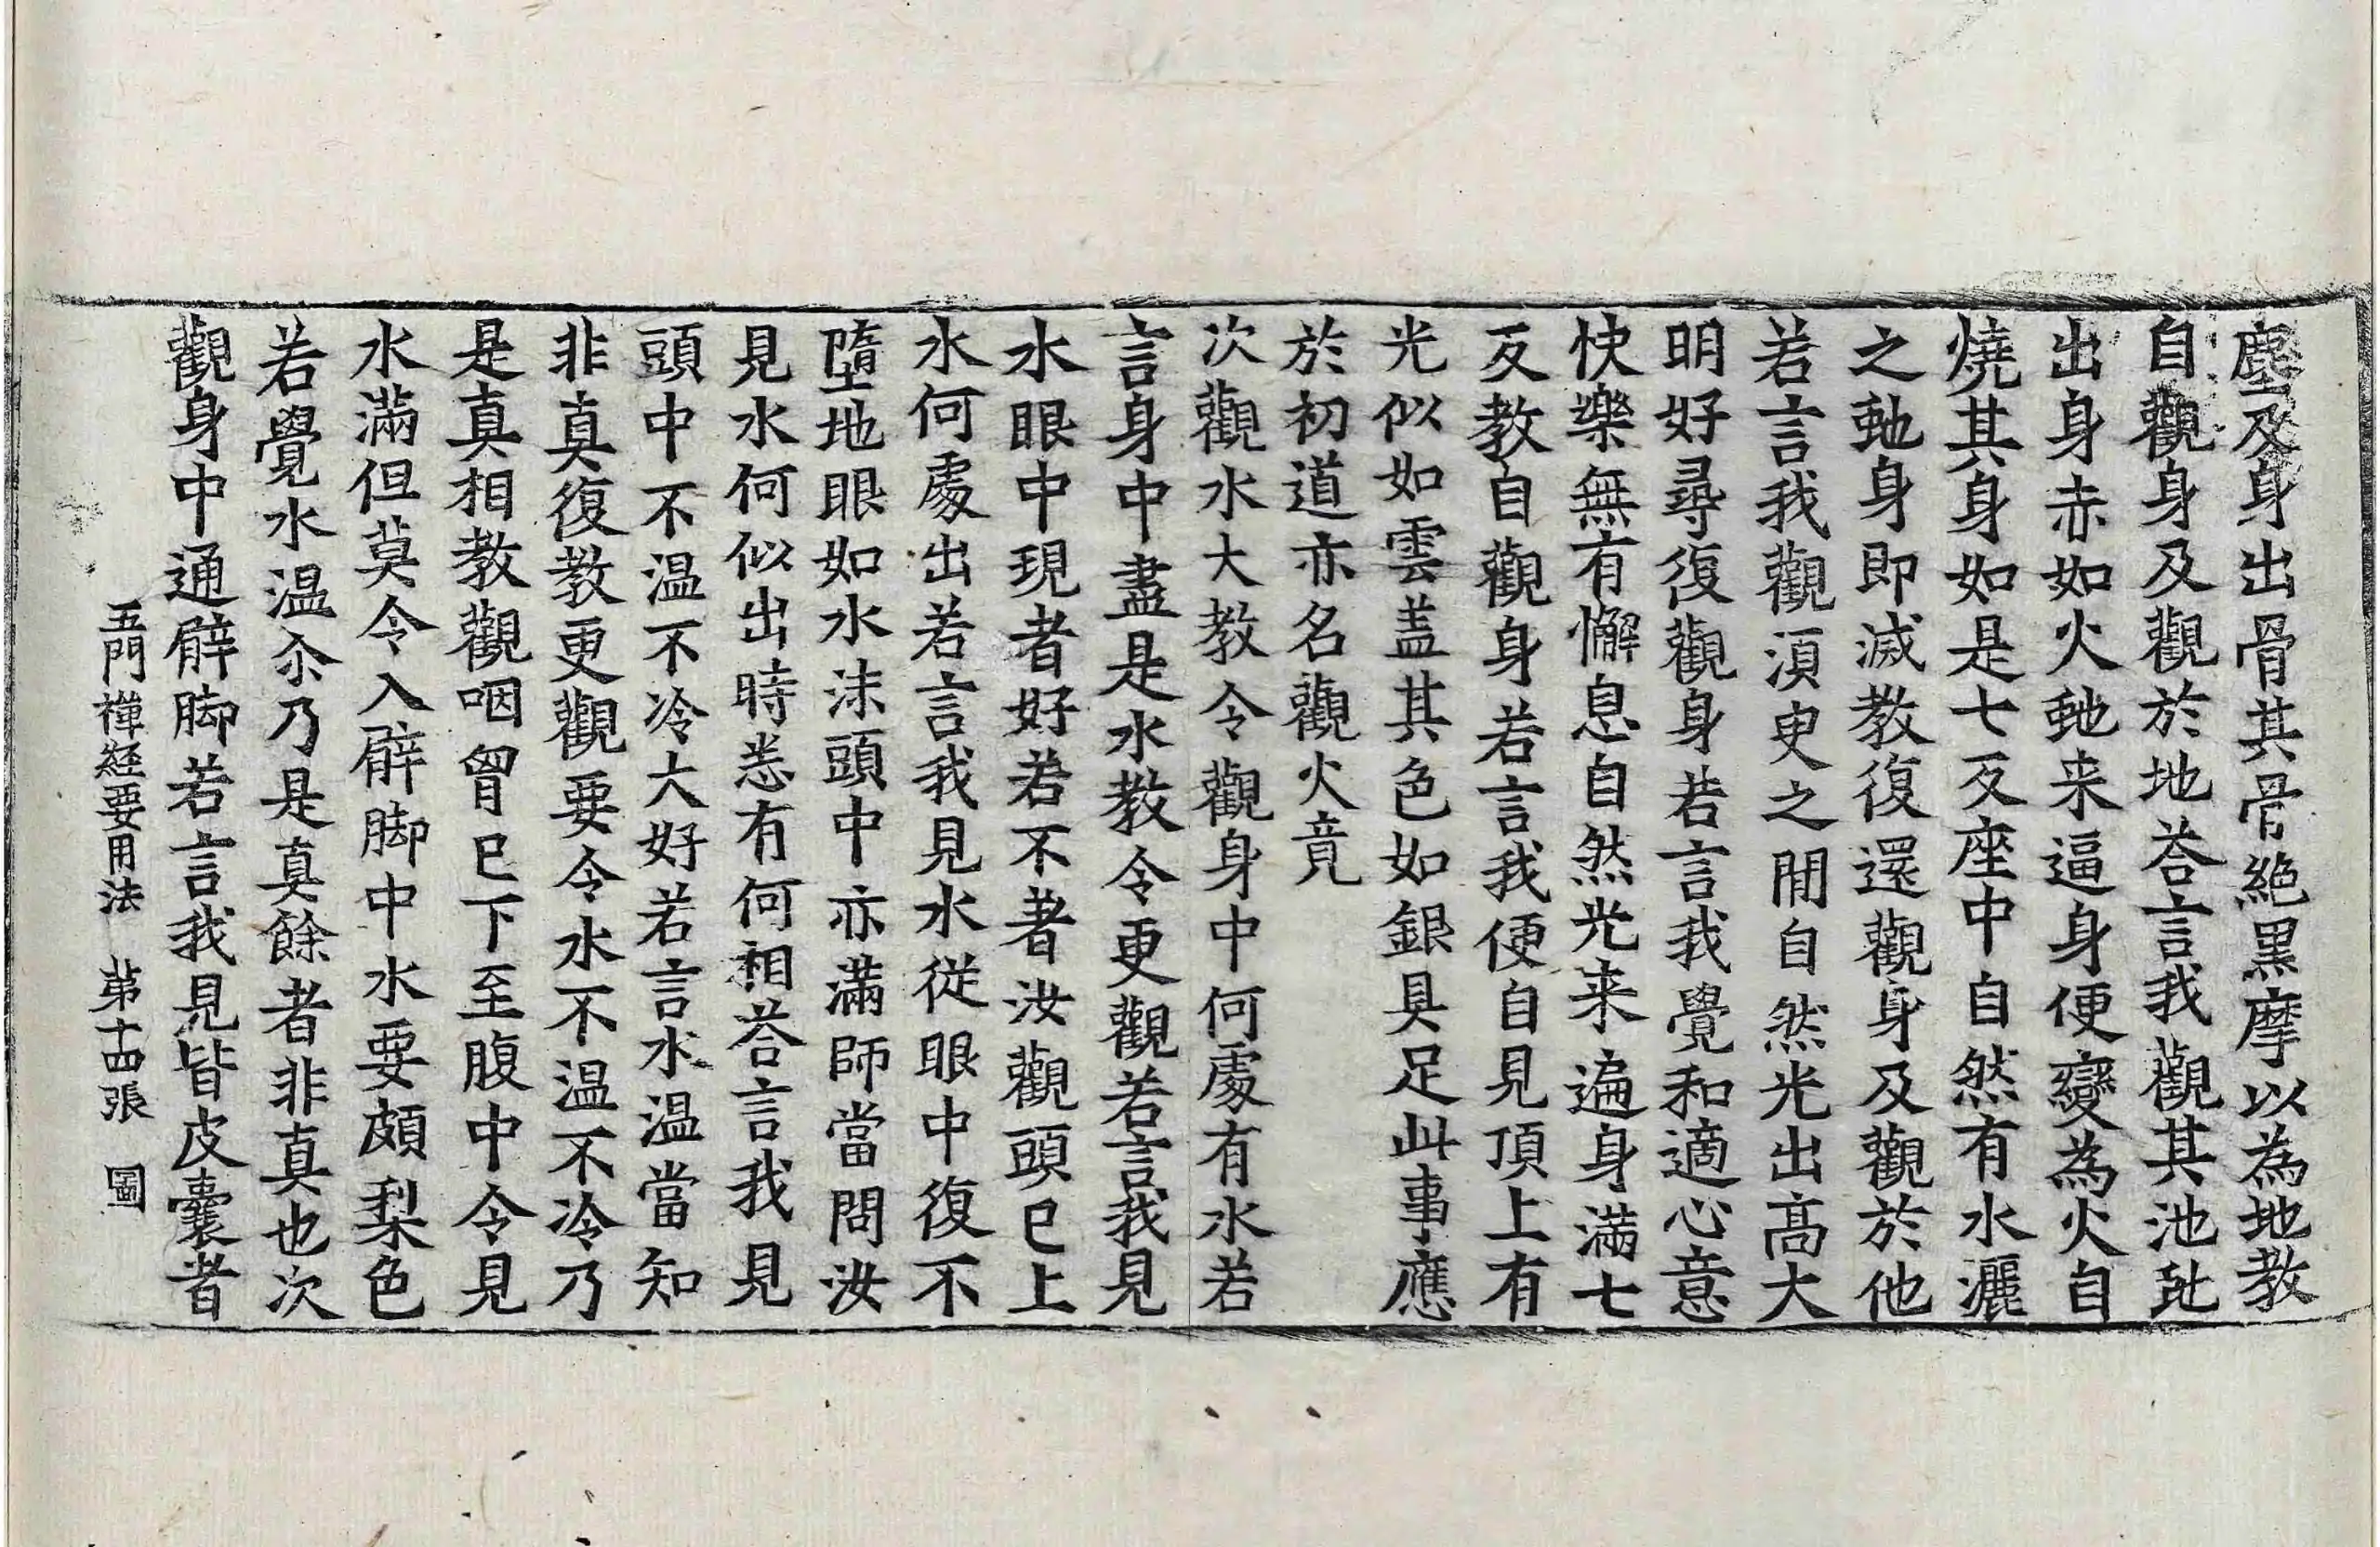 塵及身出骨其骨絶黒摩以為地教
自觀身及觀於地荅言我觀其池虵
出身赤如火虵来逼身便變為火自
燒其身如是七反座中自然有水灑
之虵身即滅教復還觀身及觀於他
若言我觀湏臾之閒自然光出高大
明好尋復觀身若言我覺和適心意
快樂無有懈息自然光来遍身滿七
反教自觀身若言我便自見頂上有
光似如雲盖其色如銀具足此事應
於初道亦名觀火竟
次觀水大教令觀身中何處有水若
言身中盡是水教令更觀若言我見
水眼中現者好若不者汝觀頭已上
水何處出若言我見水從眼中復不
墮地眼如水沫頭中亦滿師當問汝
見水何似出時悉有何相荅言我見
頭中不温不冷大好若言水温當知
非真復教更觀要令水不温不冷乃
是真相教觀咽曾已下至腹中令見
水滿但莫令入臂脚中水要頗梨色
若覺水温尒乃是真餘者非真也次
觀身中通臂脚若言我見皆皮囊者
五門禪経要用法　苐十四張　圖